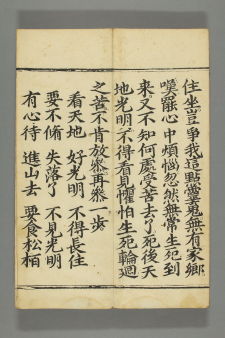 住坐豈爭我這點靈鬼無有家鄉
嘆罷心中煩惱忽然無常生死到
來又不知何處受苦去了死後天
地光明不得看見懼怕生死輪迴
之苦不肯放叅再叅一步
看天地　好光明　不得長住
要不脩　失落了　不見光明
有心待　進山去　要食松栢